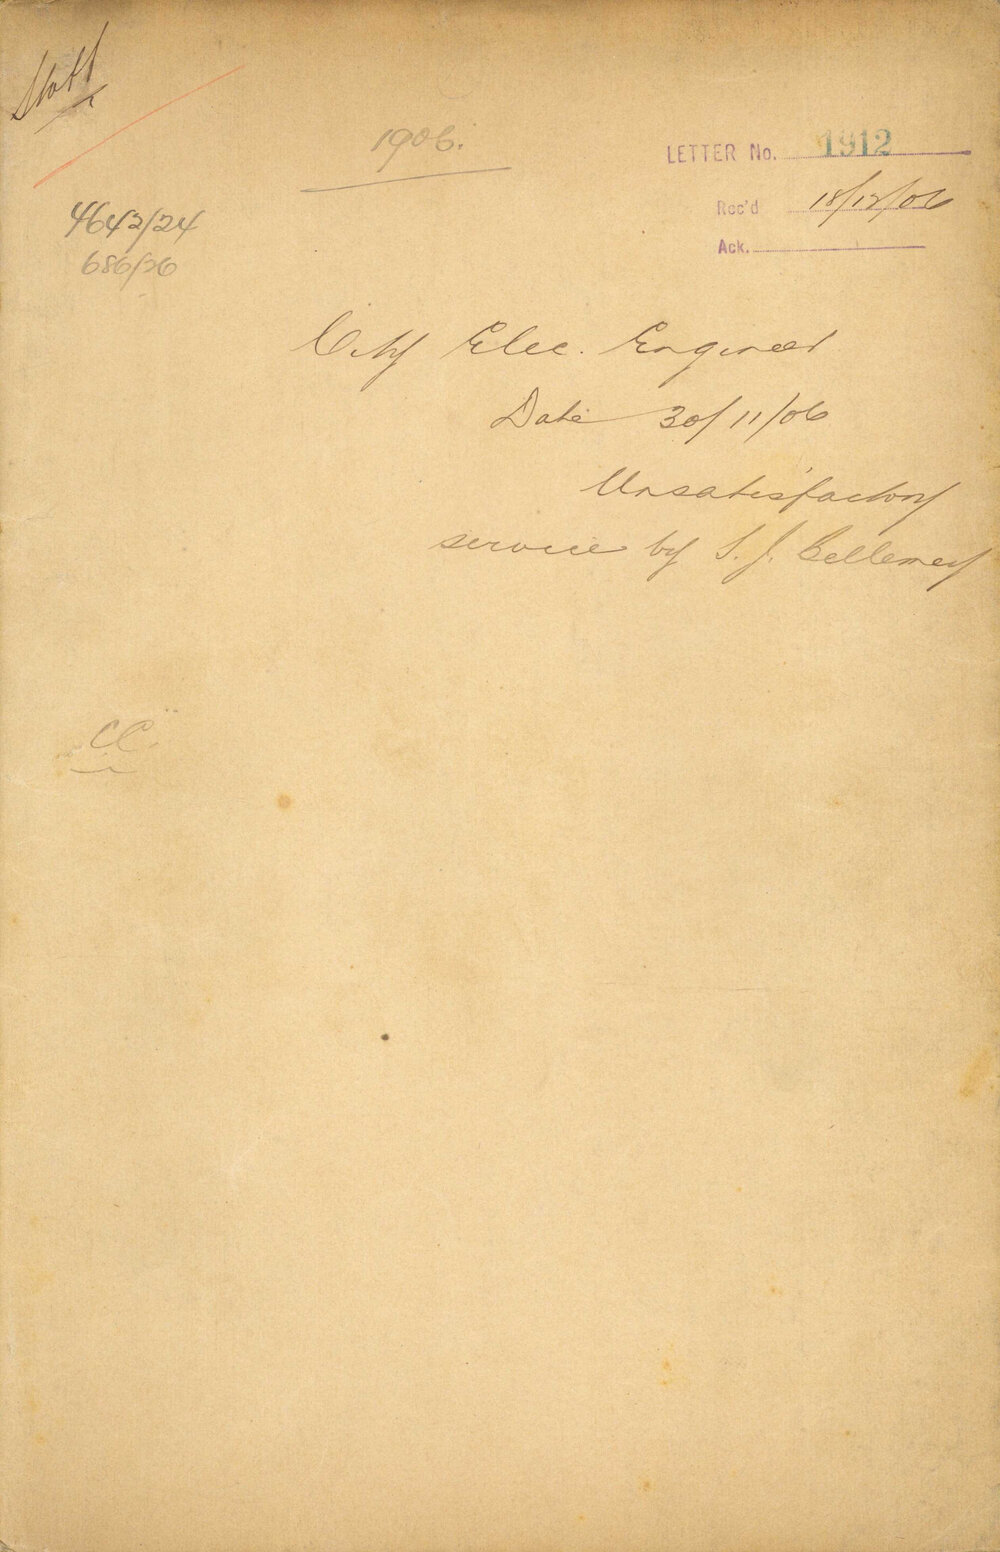 Staff
1906.
LETTER No. 1912
Rec'd 18/12/06
Ack.
4642/24
686/26
City Elec. Engineer
Date 30/11/06
Unsatisfactory
service by S. J. Bellemey
CC.